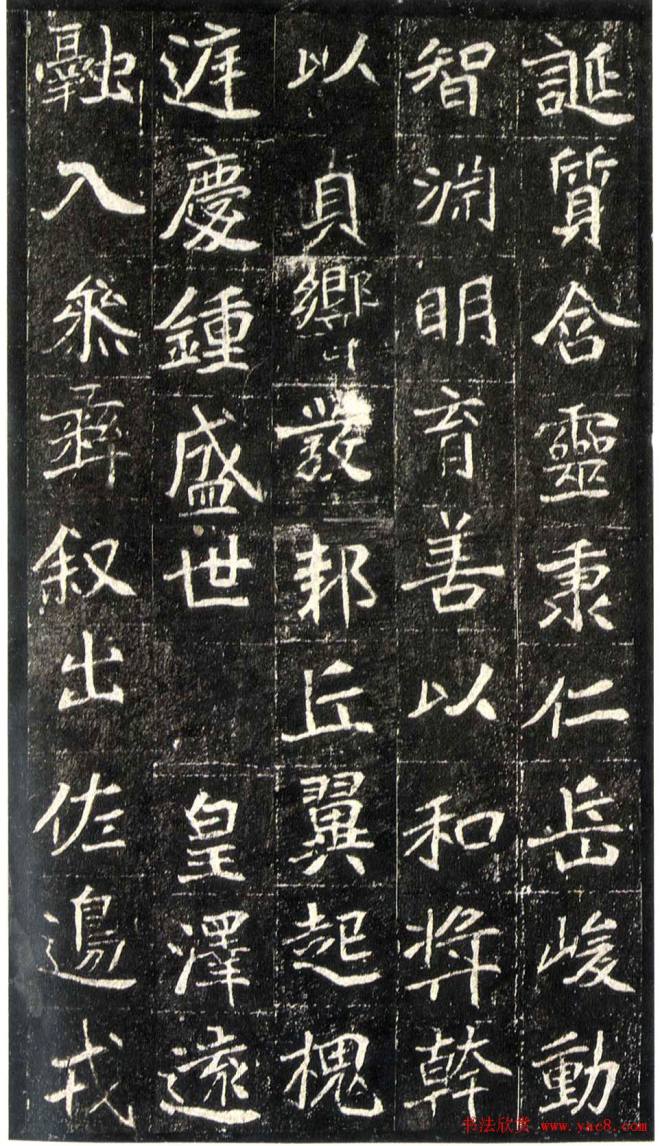 誕質含靈秉仁岳峻動
智淵明育善以和奬幹
以貞響發邦丘翼起槐
庭慶鍾盛世 皇澤遠
融入叅彝叙出佐邊戎
书法欣赏 www.yac8.com